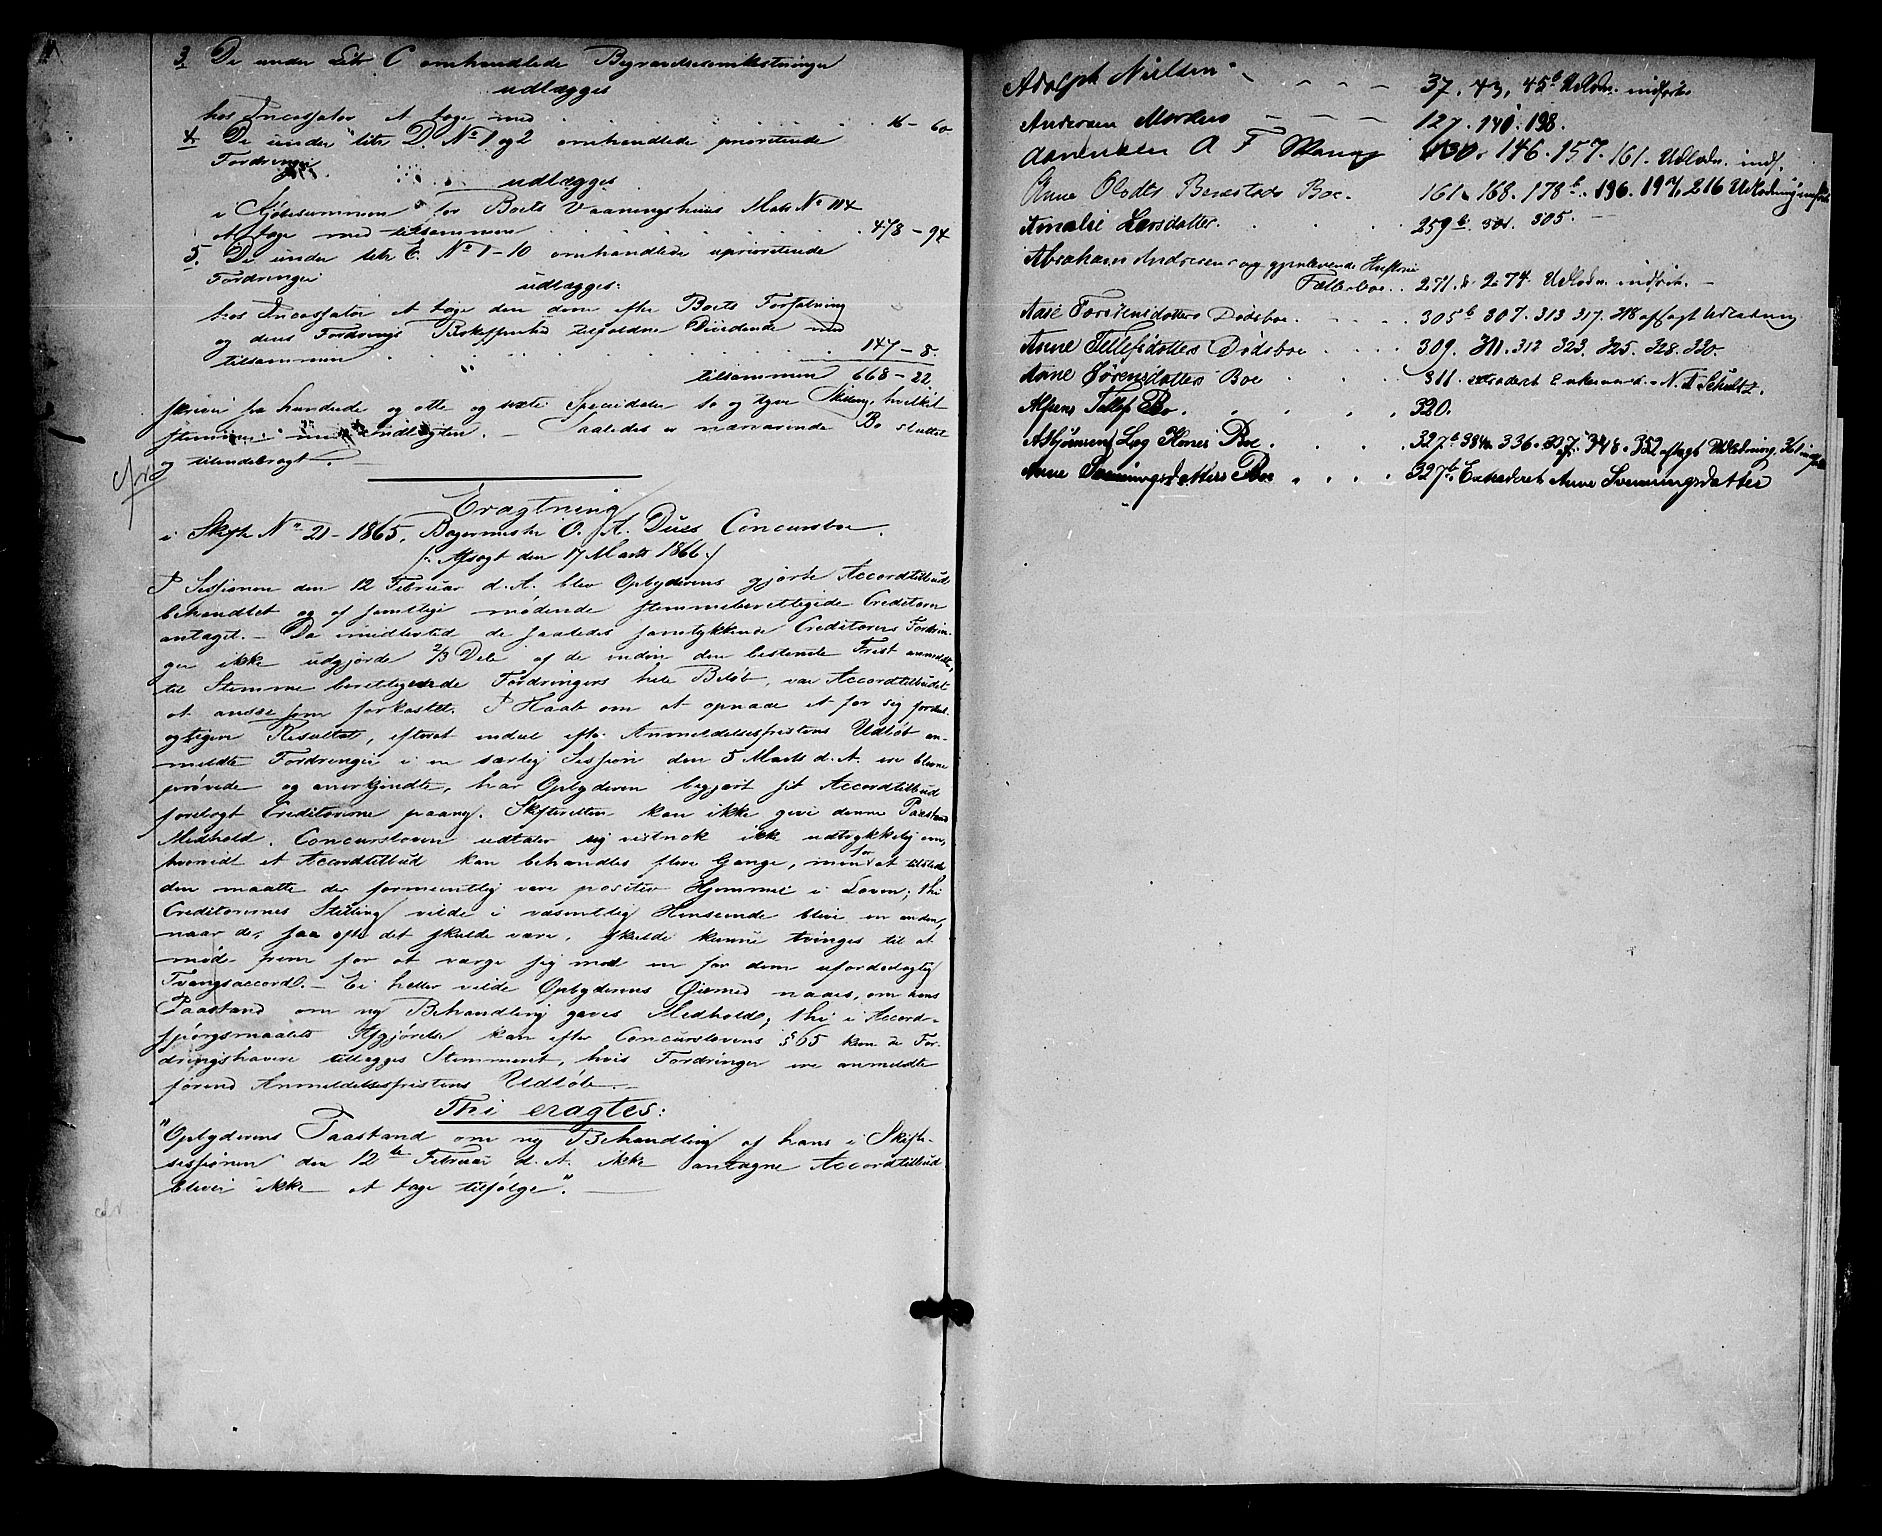 3 De under Litr C omhandlede Begravelsesomkostninger
udlægges
hos Incassator at tage med . . . 16 - 60
4. De under litr D. No 1 og 2 omhandlede prioriterede
Fordringer
udlægges
i Kjøbesummen for Boets Vaaningshuus Matr No 114
at tage med tilsammen . . . 478 - 94
5. De under litr E. No 1-10 omhandlede uprioriterede
Fordringer
udlægges:
hos Incassator at tage den dem efter Boets Forfatning
og deres Fordrings Beskaffenhed tilfaldne Dividende med
tilsammen . . . 147 - 8.
tilsammen 668 - 22
skriver sex hundrede og otte og sexti Speciedaler to og tyve Skilling, hvilket
stemmer med indtægten. - Saaledes er nærværende Bo sluttet
og tilendebragt. -
cfr
Eragtning
i Skifte No 21-1865, Bagermester O. A. Dues Concursboe.
/: Afsagt den 17 Marts 1866 :/
I Sessionen den 12 Februar d. A. blev Opbyderens gjorte Accordtilbud
behandlet og af samtlige mødende stemmeberettigede Creditorer
antaget. - Da imidlertid de saaledes samtykkende Creditorers Fordrin-
ger ikke udgjorde 2/3 Dele af de inden den bestemte Frist anmeldte,
til Stemme berettigende Fordringers hele Beløb, var Accordtilbudet
at ansee som forkastet. I Haab om at opnaae et for sig fordeel-
agtigere Resultat, efterat endeel efter Anmeldelsesfristens Udløb an-
meldte Fordringer i en særlig Session den 5 Marts d. A. ere blevne
prøvede og anerkjendte, har Opbyderen begjært sit Accordtilbud
forelagt Creditorerne paany. Skifteretten kan ikke give denne Paastand
Medhold. Concursloven udtaler sig vistnok ikke udtrykkelig om,
hvorvidt et Accordtilbud kan behandles flere Gange, men for at tilstede
den maatte der formeentlig være positiv Hjemmel i Loven; thi
Creditorernes Stilling vilde i væsentlig Henseende blive en anden,
naar de, saa ofte det skulde være, skulde kunne tvinges til at
møde frem for at værge sig mod en for dem ufordelagtig
Tvangsaccord. - Ei heller vilde Opbyderens Øiemed naaes, om hans
Paastand om ny Behandling gaves Medhold; thi i Accord-
spørgsmaalets Afgjørelse kan efter Concurslovens § 65 kun de For-
dringshavere tillægges Stemmeret, hvis Fordringer ere anmeldte
førend Anmeldelsesfristens Udløb. -
Thi eragtes:
"Opbyderens Paastand om ny Behandling af hans i Skifte-
sessionen den 12te Februar d. A. ikke antagne Accordtilbud
bliver ikke at tage tilfølge". -
cfr
Adolph Nielsen - - - 37. 43, 45b Udlodn. indført.
Andersen Mordens - - - 127. 140. 198.
Aanensen A F Mang 130. 146. 157. 161. Udlodn. indf.
Anne Olsdtr Berestads Boe. 161. 168. 178b. 196. 197. 216 Udlodning indført
Amalie Larsdatter. . . . 259b. 301. 305. -
Abraham Andresens og gjenlevende Hustrues
Fællesboe. . 271. & 274. Udlodn. indført. -
Aase Torstensdatters Dødsboe. . . . 305b 307. 313 317. 318 afsagt Udlodning
Anne Tellefsdatters Dødsboe . . . 309. 311. 312 323. 325. 328. 330.
Anne Sørensdatters Boe . . . 311. extraderet Enkemand N. A Schultz.
Alfsens Tellef Bo. . . . 320.
Asbjørnsens Lag Kones Boe. . . . 327b 334. 336. 337. 348. 352 afsagt Udlodning. 361 indført
Anne Svenningsdatters Boe . . . 327b. Extraderet Anne Svenningsdatter